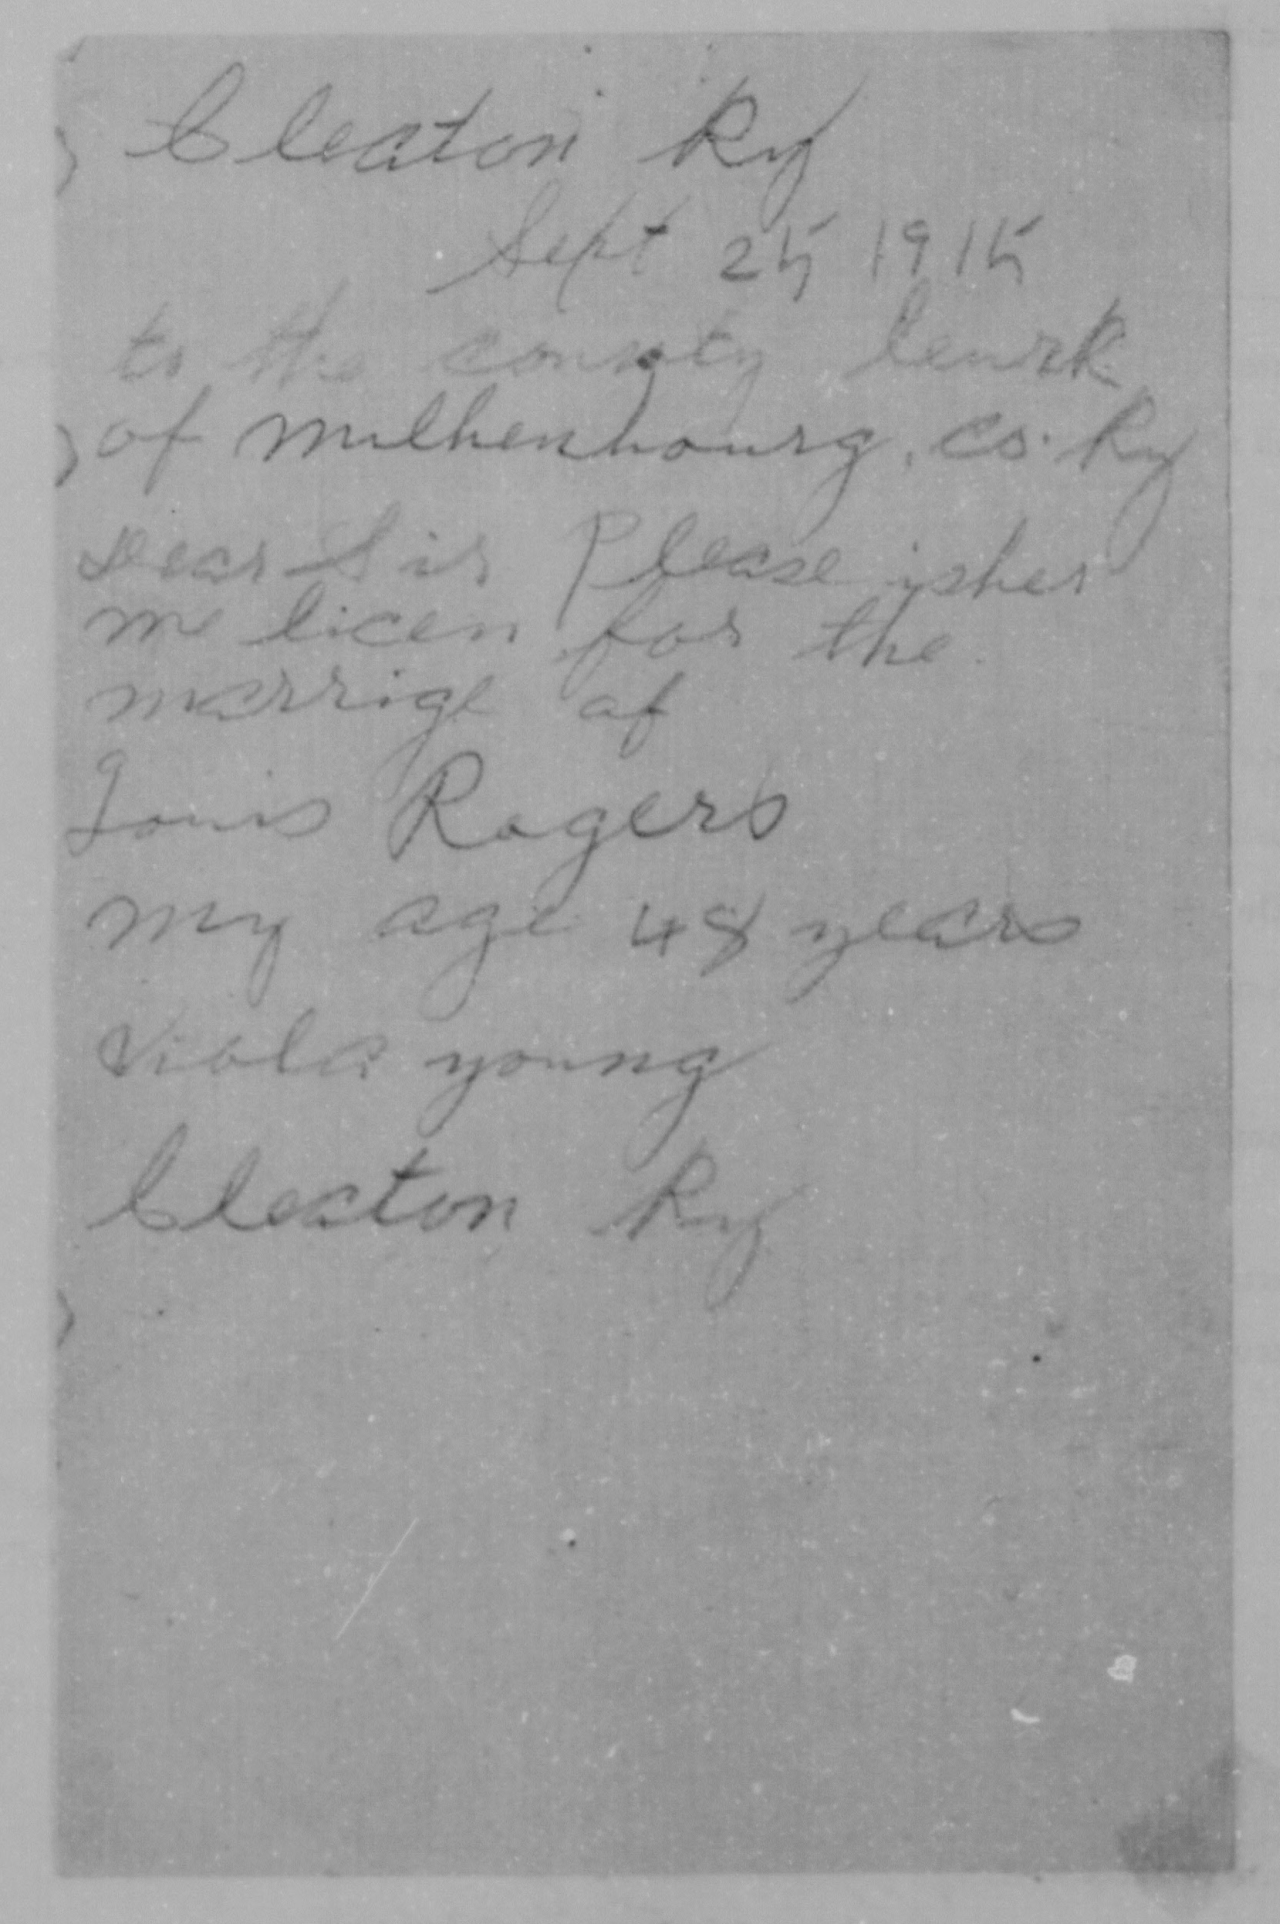 Cleaton Ky
Sept 25 1915
to the county lewrk
of mulhenbourg. co. Ky
Dear Sir Please isher
me licen for the
marrige of
Louis Rogers
my age 48 years
Viola young
Cleaton Ky